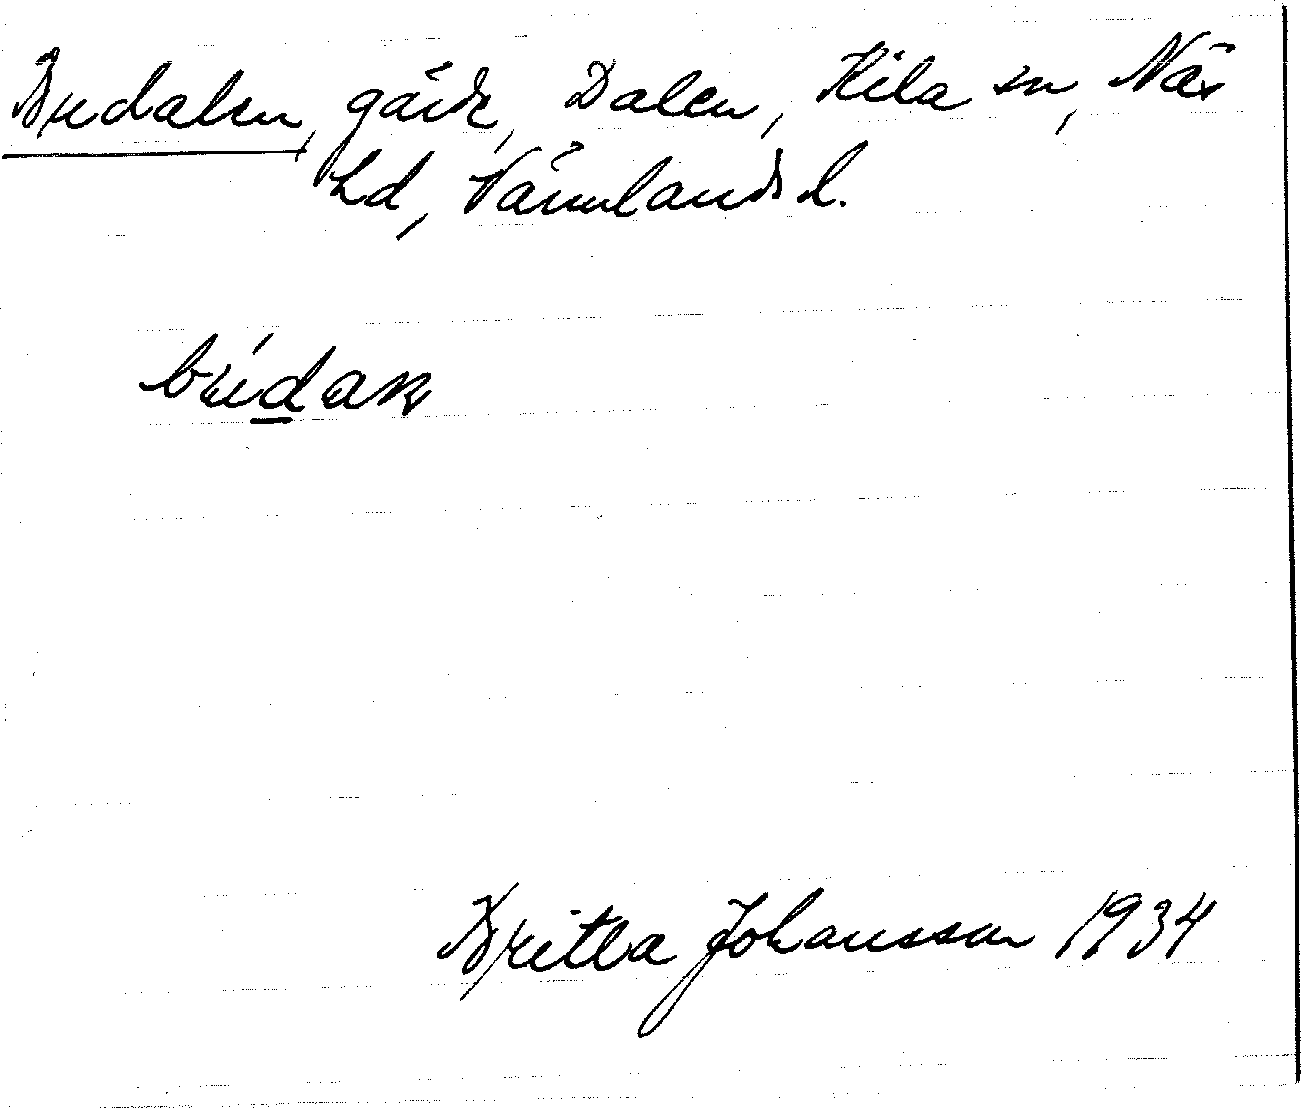 Budalen, gård, Dalen, Kila sn, Näs
hd, Värmlands l.
búdan
Britta Johansson 1934